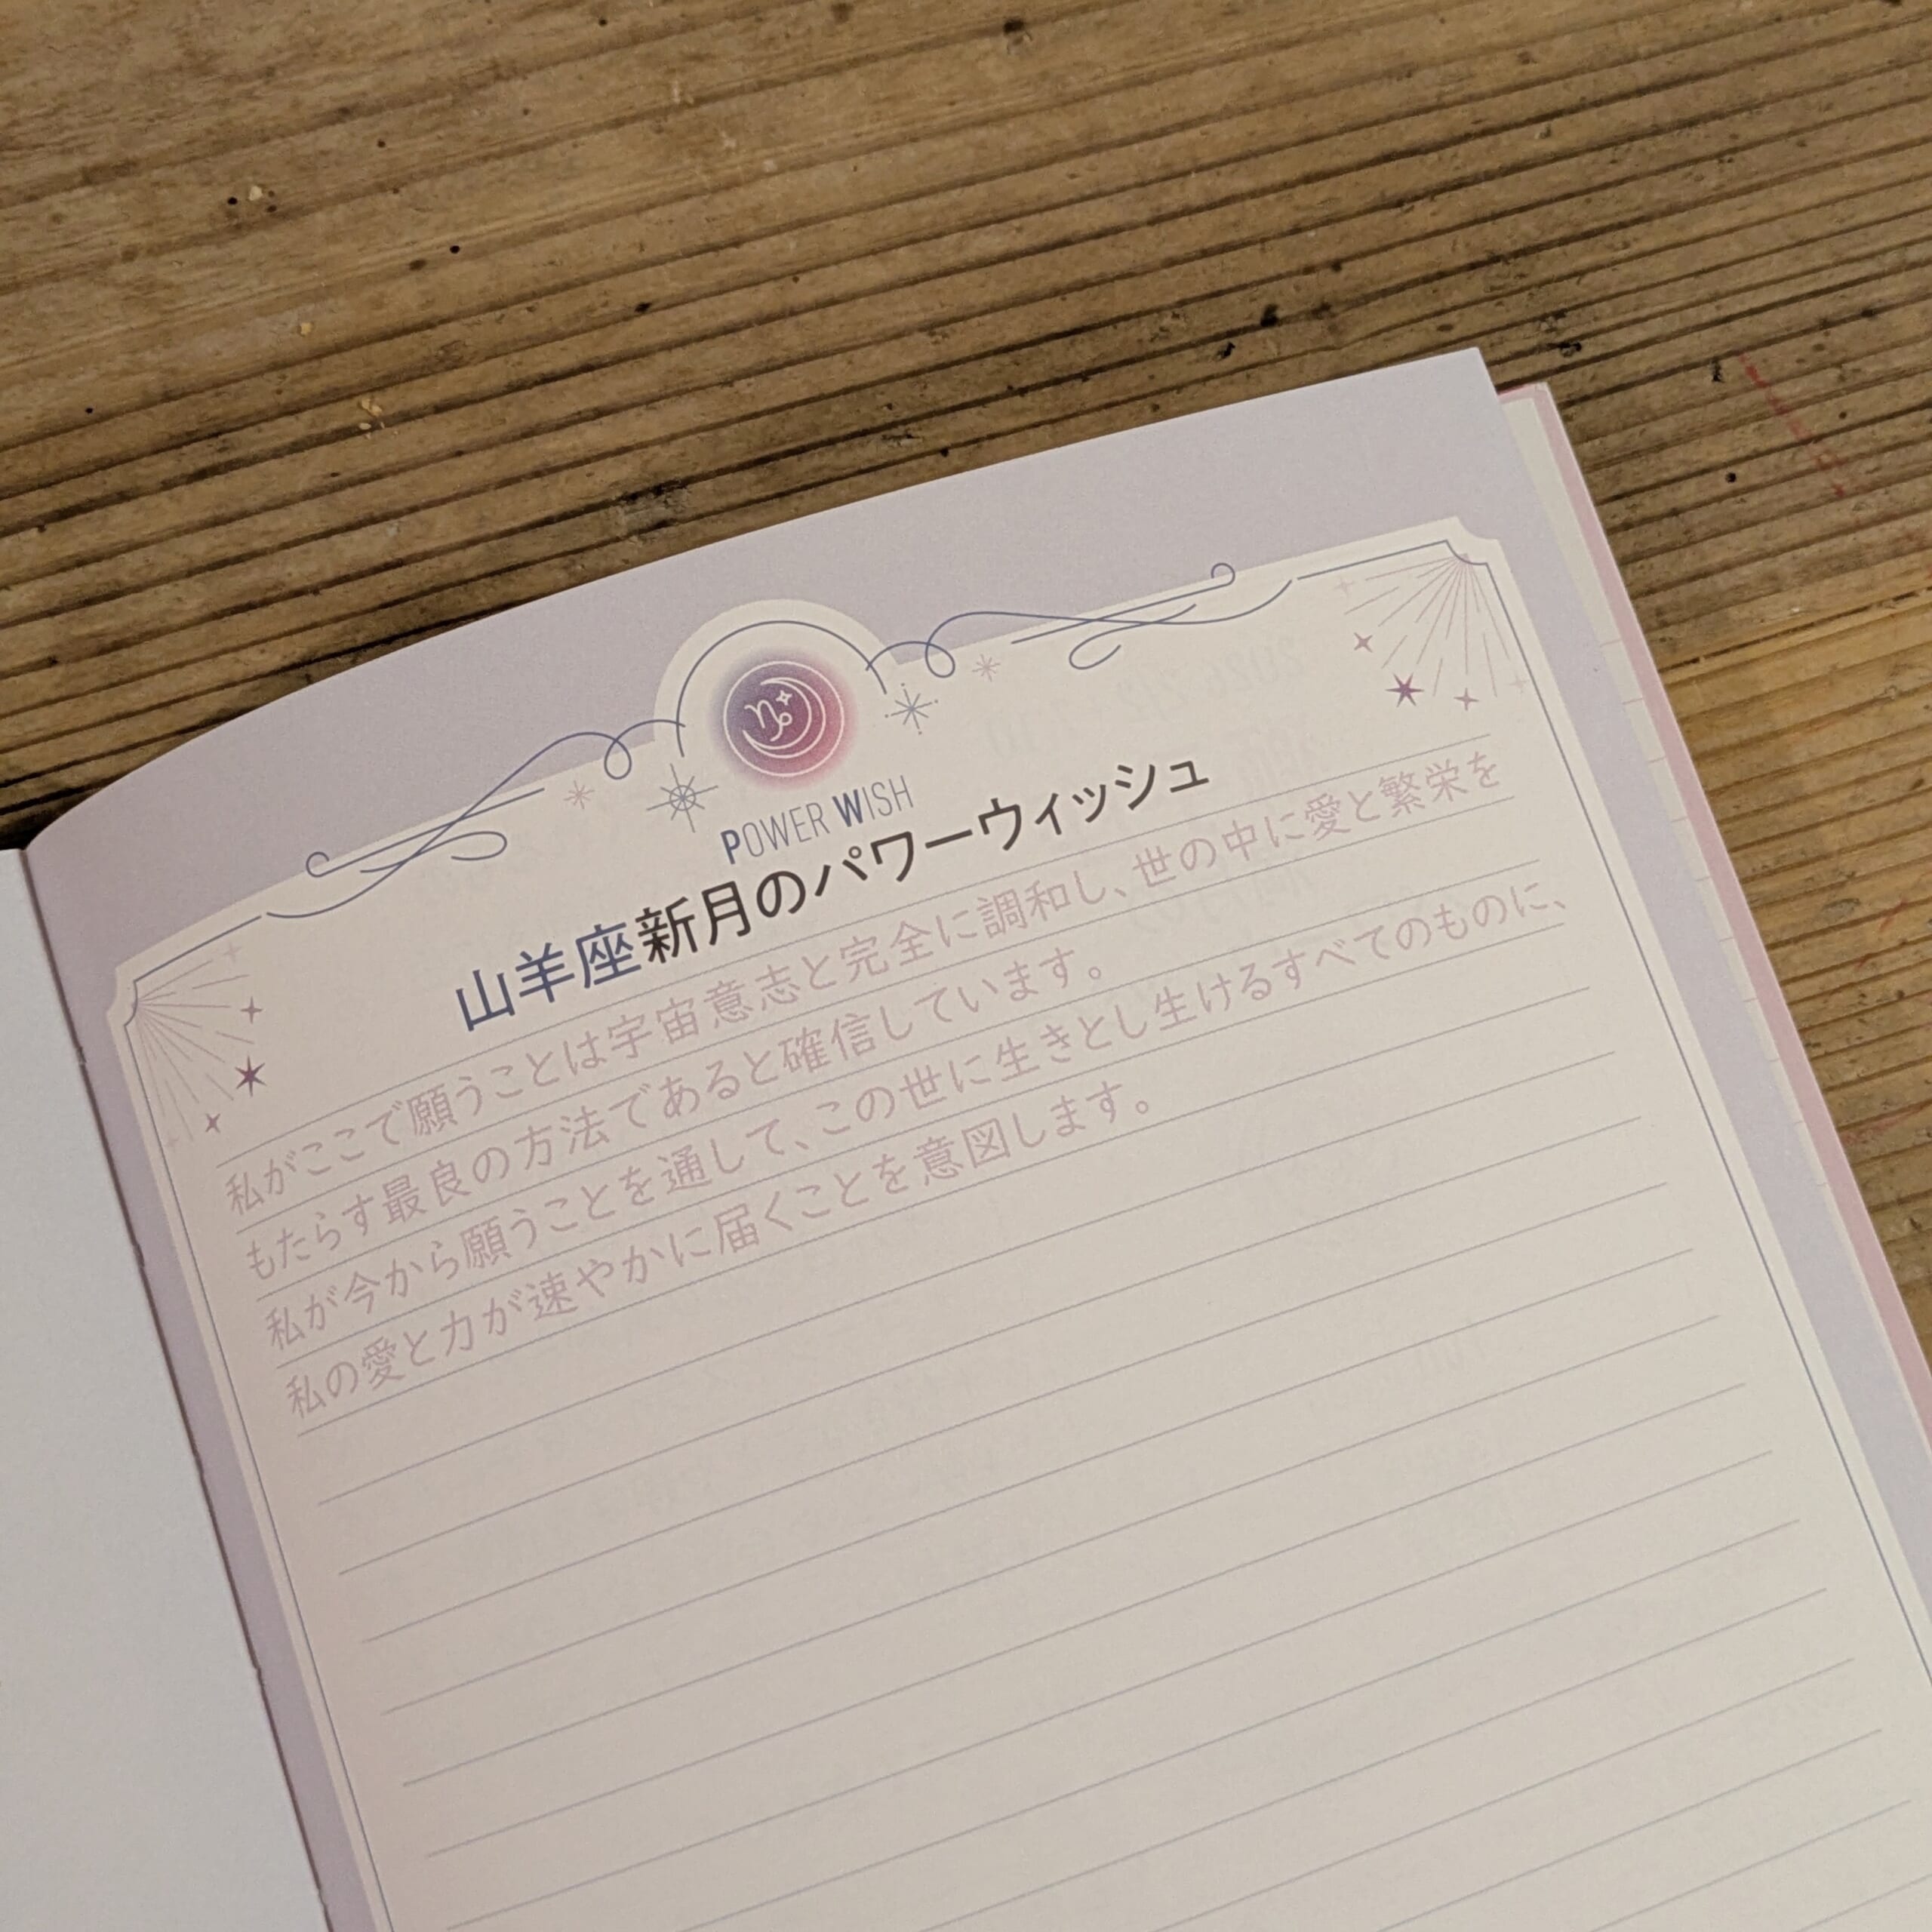 POWER WISH
山羊座新月のパワーウィッシュ
私がここで願うことは宇宙意志と完全に調和し、世の中に愛と繁栄を
もたらす最良の方法であると確信しています。
私が今から願うことを通して、この世に生きとし生けるすべてのものに、
私の愛と力が速やかに届くことを意図します。